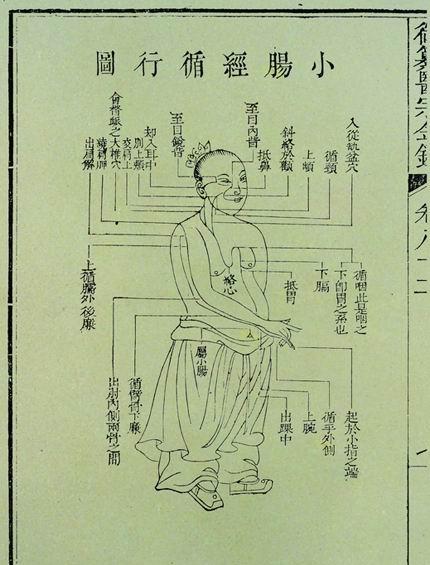 小腸經循行圖
御纂醫宗金鑑
卷八十二
入從缺盆穴
循頸
上頄
斜絡於顴
抵鼻
至目內眥
至目銳眥
却入耳中
別上頰
交肩上
大椎穴
會督脈之
繞肩胛
出肩解
循咽此是咽之
下卽胃之系也
下膈
抵胃
絡心
屬小腸
上循臑外後廉
起於小指之端
循手外側
上腕
出踝中
循臂骨下廉
出肘內側兩骨之間